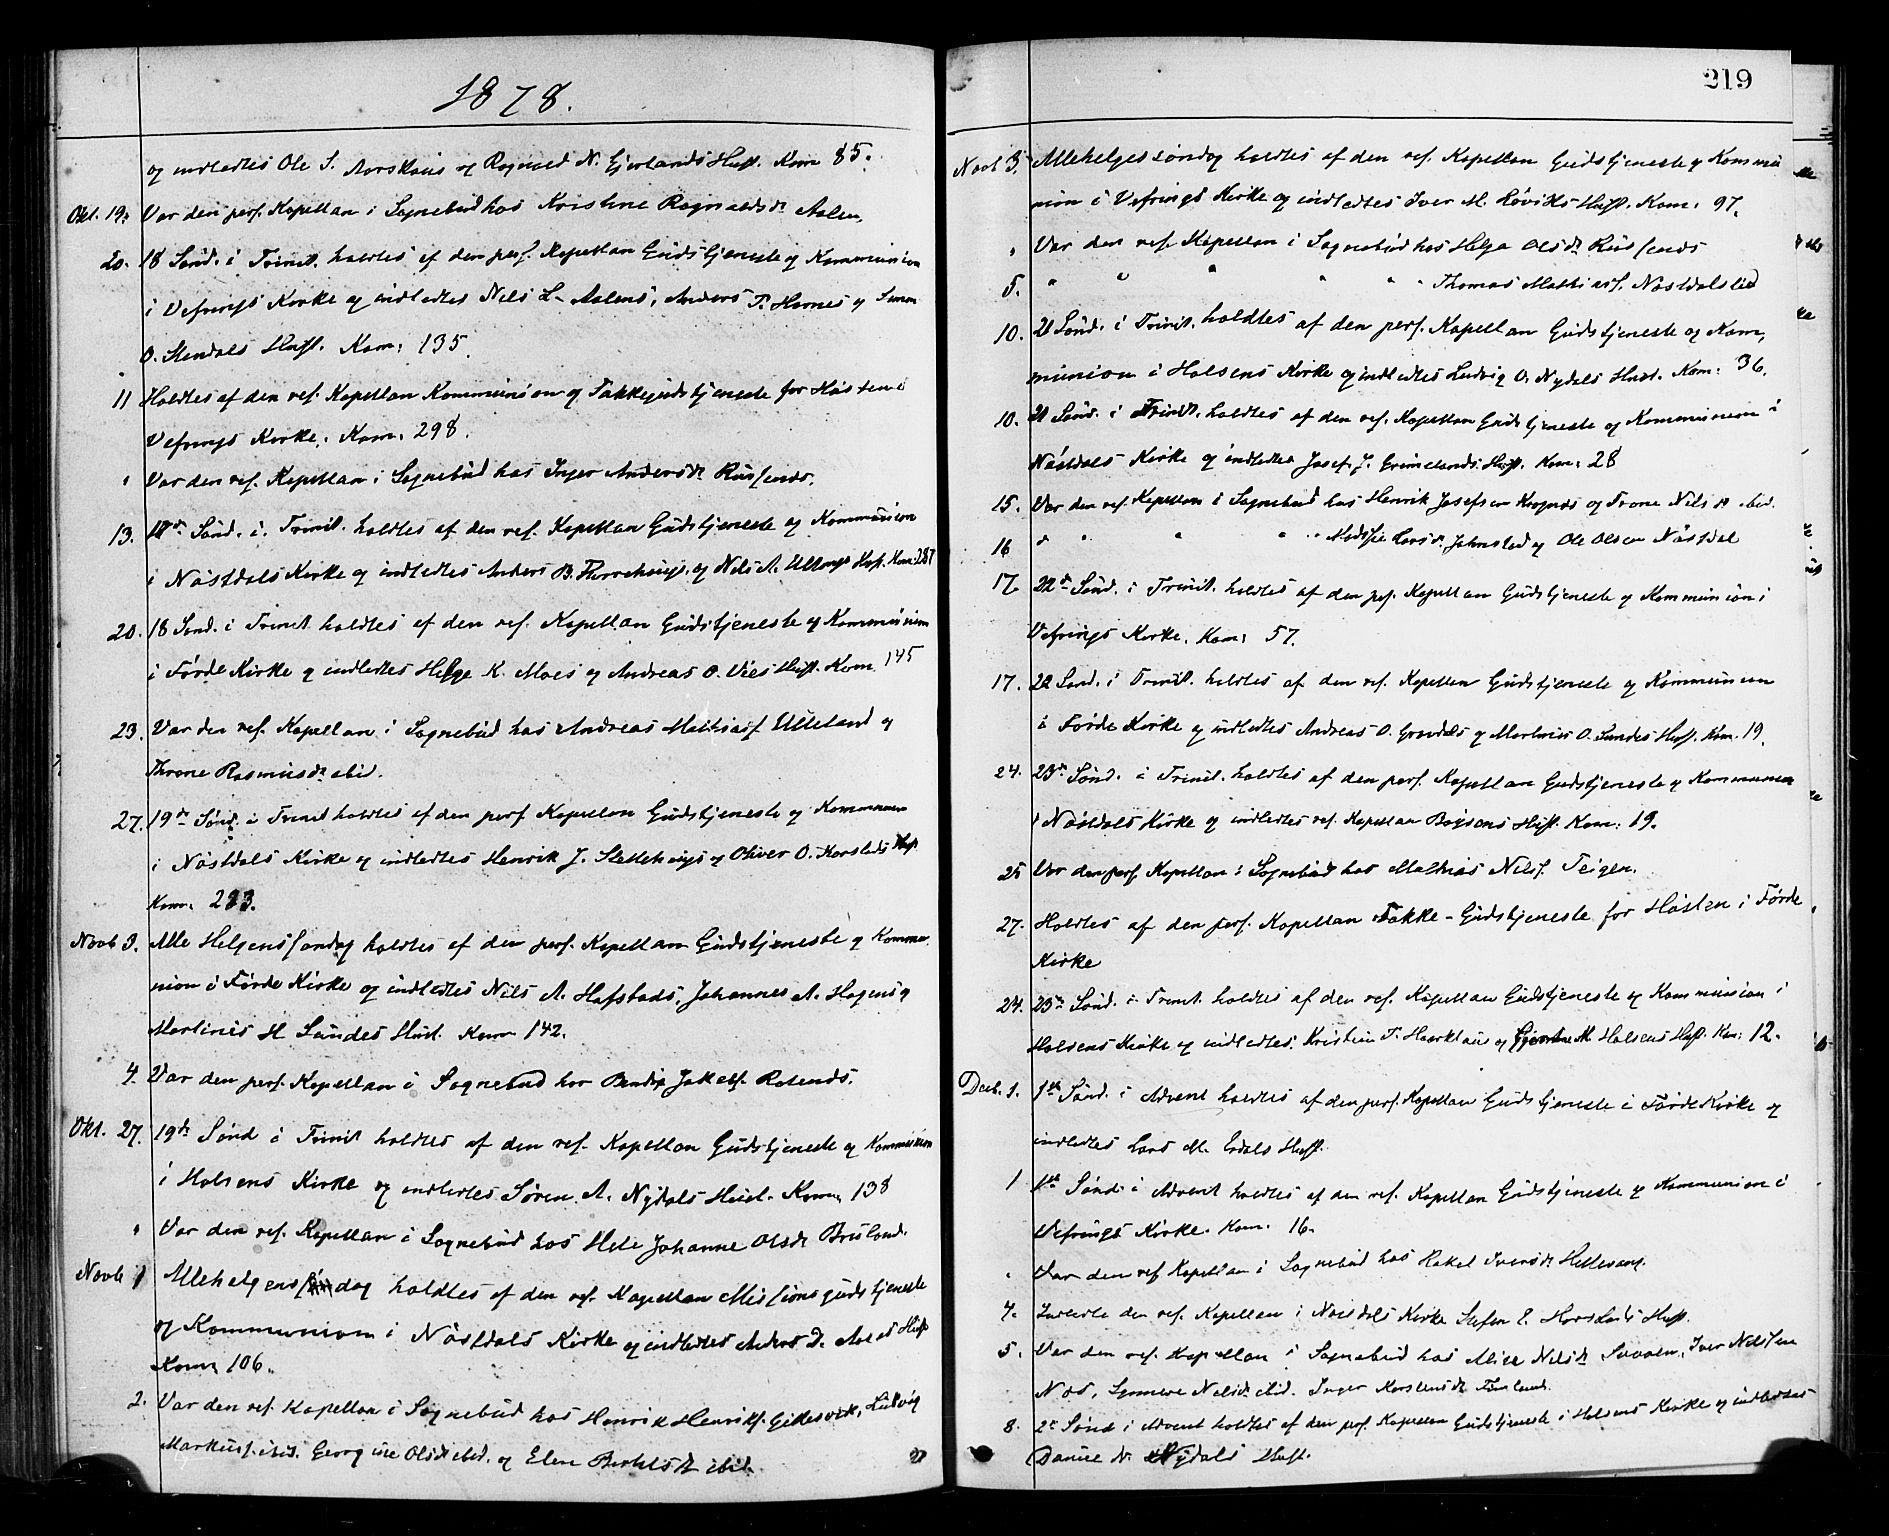 1878.
og indledtes Ole S. Aarskaus og Ragnald N. Gjerlands Hust. Kom 85.
Okt. 19. Var den pers. Kapellan i Sognebud hos Kristine Ragnaldsdr Aalen.
20. 18 Sønd. i Trinit. holdtes af den pers. Kapellan Gudstjeneste og Kommunion
i Vefrings Kirke og indledtes Nils L. Aalens, Anders T. Hornes og Simon
O. Stendals Hust. Kom: 135.
11 Holdtes af den res. Kapellan Kommunion og Takkegudstjeneste for Høsten i
Vefrings Kirke. Kom. 298.
" Var den res. Kapellan i Sognebud hos Inger Andersdr Russenes.
13. 17de Sønd. i. Trinit. holdtes af den res. Kapellan Gudstjeneste og Kommunion
i Nøstdals Kirke og indledtes Anders B. og Nils A. Hust. Kom: 287
20. 18 Sønd. i Trinit. holdtes af den res. Kapellan Gudstjeneste og Kommunion
i Førde Kirke og indledtes Helge K. Moes og Andreas O. Vies Hust. Kom 145
23. Var den res. Kapellan i Sognebud hos Andreas Mathiass Ulleland og
Throne Rasmusdr ibid.
27. 19de Sønd. i Trinit holdtes af den pers Kapellan Gudstjeneste og Kommunion
i Nøstdals Kirke og indledtes Henrik J. og Oliver O. Horstads Hust.
Kom. 223.
Novb 3. Alle Helgenssøndag holdtes af den pers. Kapellan Gudstjeneste og Kommu
nion i Førde Kirke og indledtes Nils A. Hafstads, Johannes A. Hagens og
Martinus H Sundes Hust. Kom 142.
4. Var den pers. Kapellan i Sognebud hos Bendix Jakobs.
Okt. 27. 19de Sønd i Trinit holdtes af den res. Kapellan Gudstjeneste og Kommunion
i Holsens Kirke og indledtes Søren A. Nydals Hust. Kom. 138
" Var den res. Kapellan i Sognebud hos Johanne Olsdr
Novb 1 Allehelgensdag holdtes af den res. Kapellan Missionsgudstjeneste
og Kommunion i Nøstdals Kirke og indledtes Anders D. Hust
Kom. 106.
2. Var den res. Kapellan i Sognebud hos Henrik Henriks. Ludvig
Markuss. ibid. Georgine Olsdr ibid. og Elen ibid.
219
Novb 3. Allehelgessøndag holdtes af den res. Kapellan Gudstjeneste og Kommu
nion i Vefrings Kirke og indledtes Iver M. Løviks Hust. Kom. 97.
" Var den res. Kapellan i Sognebud hos Helga Olsdr Russenes
5. " " " " " " Thomas Mathiass. Nøstdalslid
10. 21 Sønd. i Trinit. holdtes af den pers. Kapellan Gudstjeneste og Kom,
munion i Holsens Kirke og indledtes Ludvig O. Nydals Hust. Kom: 36.
10. 21 Sønd. i Trinit. holdtes af den res. Kapellan Gudstjeneste og Kommunion i
Nøstdals Kirke og indledtes Josef J. Grimelands Hust. Kom: 28
15. Var den res. Kapellan i Sognebud hos Henrik Josefsen og Trone Nilsdr ibid.
16 " " " " " og Ole Olsen Nøstdal
17. 22de Sønd. i Trinit. holdtes af den pers. Kapellan Gudstjeneste og Kommunion i
Vefrings Kirke. Kom: 57.
17. 22 Sønd. i Trinit. holdtes af den res. Kapellan Gudstjeneste og Kommunion
i Førde Kirke og indledtes Andreas O. og Martinus O. Sundes Hust. Kom. 19.
24. 23de Sønd. i Trinit. holdtes af den pers. Kapellan Gudstjeneste og Kommunion
i Nøstdals Kirke og indledtes res. Kapellan Boysens Hust. Kom: 19.
25 Var den pers. Kapellan i Sognebud hos Mathias Nilss. Teigen.
27. Holdtes af den pers. Kapellan Takke-Gudstjeneste for Høsten i Førde
Kirke
24. 23de Sønd. i Trinit. holdtes af den res. Kapellan Gudstjeneste og Kommunion i
Holsens Kirke og indledtes Kristian T. og M. Holsens Hust. Kom: 12.
Decb. 1. 1ste Sønd. i Advent holdtes af den pers. Kapellan Gudstjeneste i Førde Kirke og
indledtes Lars M. Erdals Hust.
1 1ste Sønd. i Advent holdtes af den res. Kapellan Gudstjeneste og Kommunion i
Vefrings Kirke. Kom. 16.
" Var den res Kapellan i Sognebud hos Rakel Iversdr
4. den res. Kapellan i Nøstdals Kirke Stefen E. Horstads Hust.
5. Var den res. Kapellan i Sognebud hos Alice Nilsdr Iver Nilssen
Nilsdr ibid. Inger
8. 2e Sønd i Advent holdtes af den pers. Kapellan Gudstjeneste i Holsens Kirke og indledtes
Daniel N. Nydals Hust.